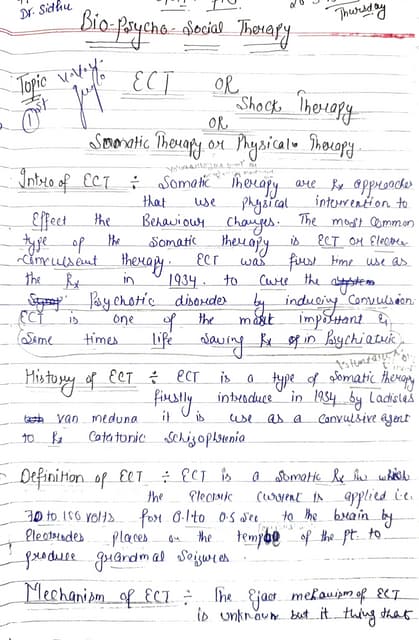 Dr. Sidhu
Thursday
Bio-Psycho-Social Therapy
Topic
1st
①
ECT OR
Shock Therapy
OR
Somatic Therapy or Physical Therapy.
Intro of ECT ÷ Somatic Therapy are Rx approaches
that use physical intervention to
Effect the Behaviour Changes. The most common
type of the Somatic therapy is ECT or Electro
convulsent therapy. ECT was first time use as
the Rx in 1934. to cure the
Psychotic disorder by inducing Convulsion
ECT is one of the most important &
Some times life saving Rx in Psychiatric
History of ECT ÷ ECT is a type of Somatic therapy
firstly introduce in 1934 by Ladislas
van meduna it is use as a Convulsive agent
to Rx Catatonic Schizophrenia
Definition of ECT ÷ ECT is a Somatic Rx in which
the Electric Current is applied i.e.
70 to 150 volts for 0.1 to 0.5 sec to the brain by
Electrodes places on the temple of the pt. to
produce grandmal Seizures.
Mechanism of ECT ÷ The Exact mekanism of ECT
is unknown but it thing that